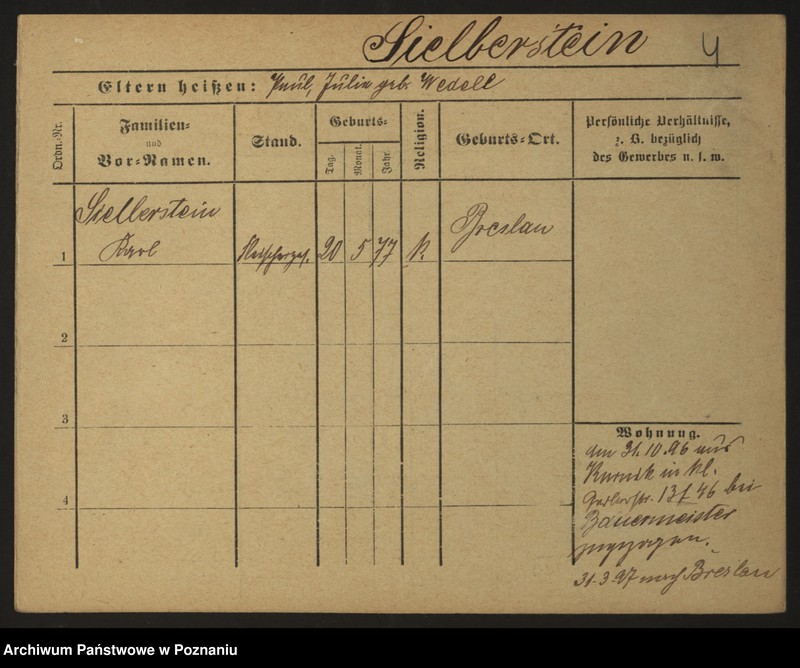 Sielberstein 4
Eltern heißen: Paul, Julie geb. Wedell
Ordn.-Nr.
Familien-
und
Vor-Namen.
Stand.
Geburts-
Tag.
Monat.
Jahr.
Religion.
Geburts-Ort.
Persönliche Verhältnisse,
z. B. bezüglich
des Gewerbes u. s. w.
1
Sielberstein
Karl
Fleischerges.
20 5 77
k.
Breslau
2
3
4
Wohnung.
am 31.10.96 aus
Kurnik in kl.
Gerberstr. 13 f 46 bei
Bauermeister
zugezogen.
31.3.97 nach Breslau
Archiwum Państwowe w Poznaniu